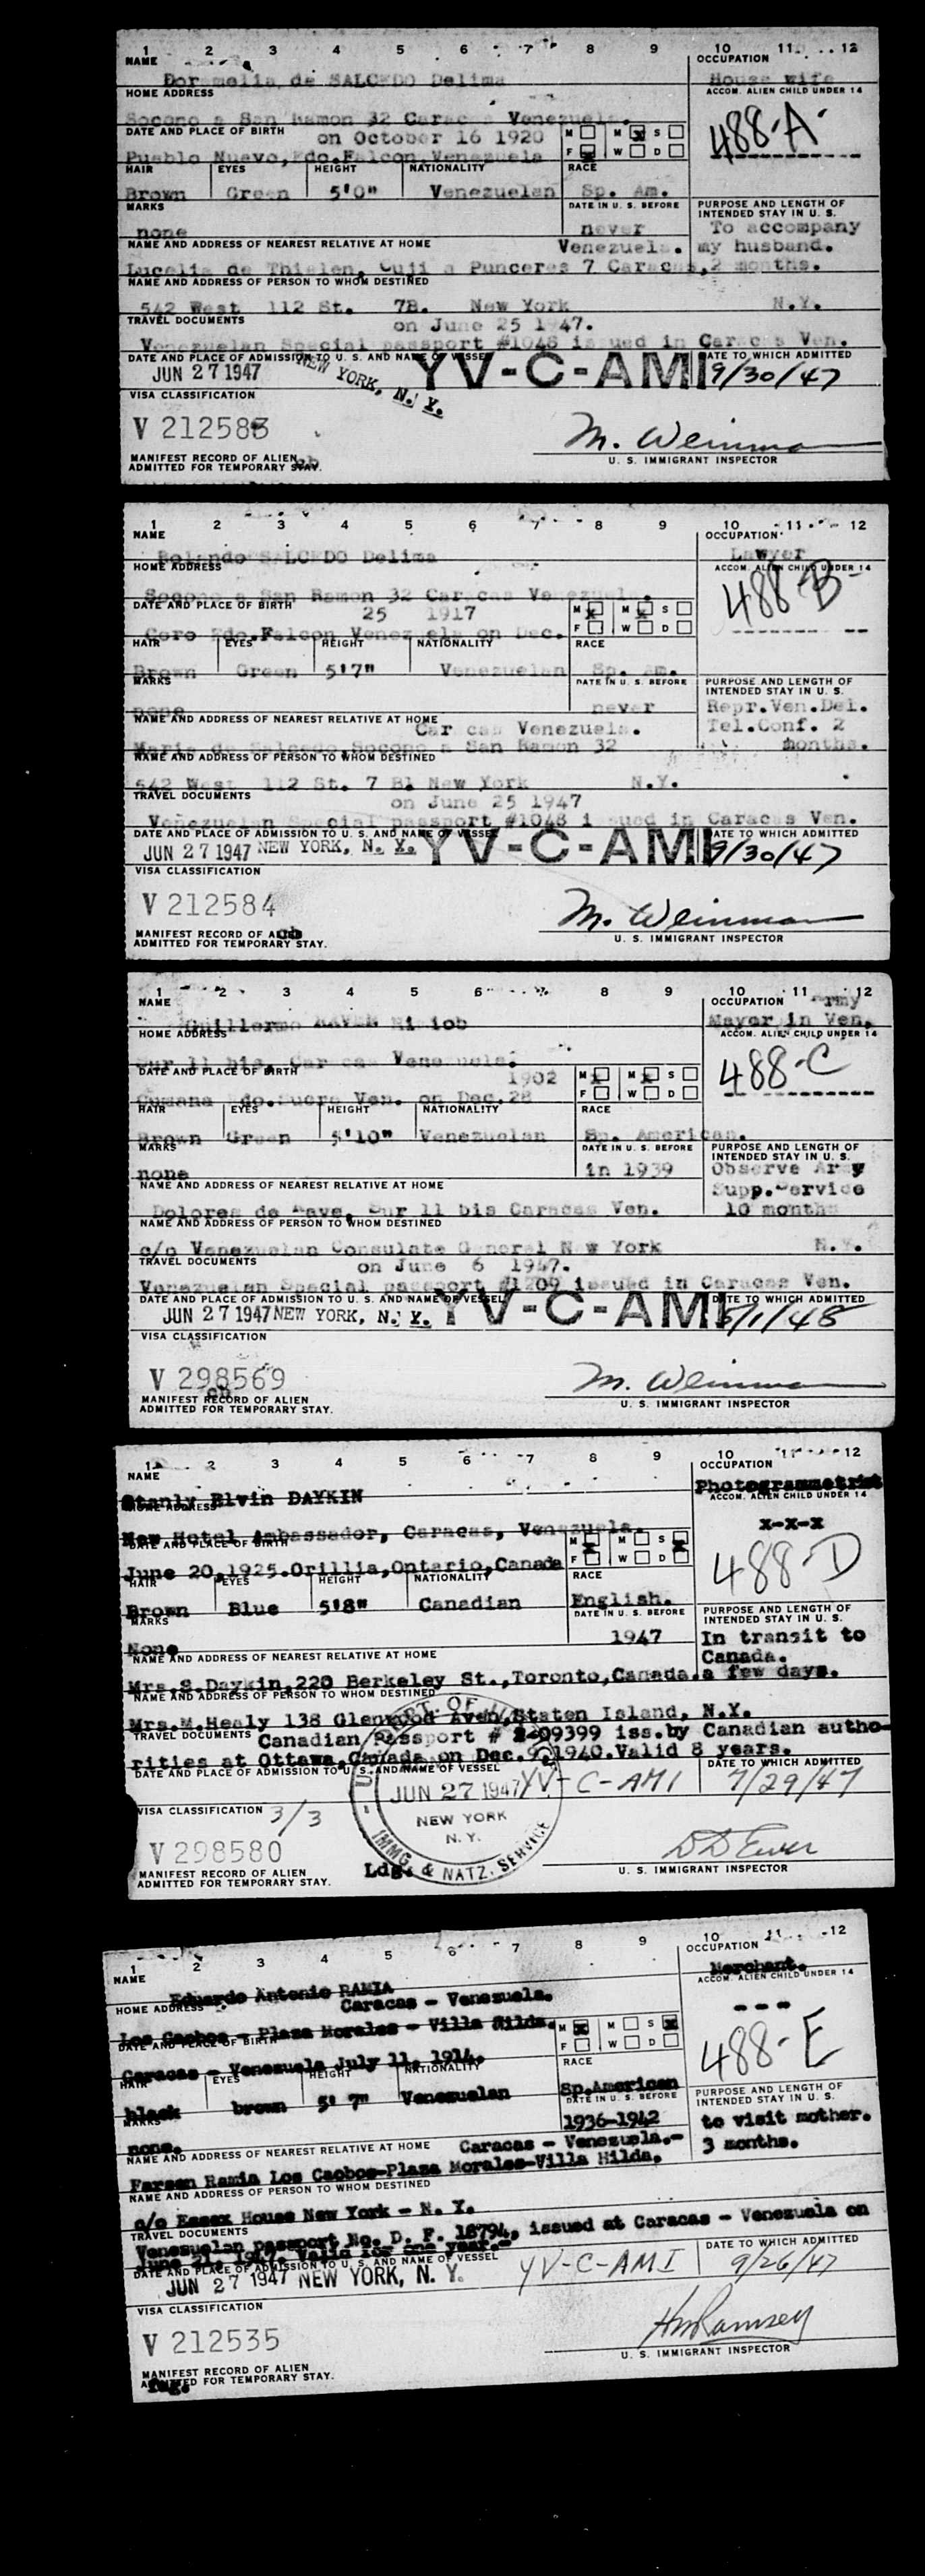 1 2 3 4 5 6 7 8 9 10 11 12
NAME OCCUPATION
Doramelia de SALCEDO Delima House wife
HOME ADDRESS ACCOM. ALIEN CHILD UNDER 14
Socono a San Ramon 32 Caracas Venezuela. 488-A
DATE AND PLACE OF BIRTH on October 16 1920 M M X S
Pueblo Nuevo, Edo.Falcon.Venezuela F X W D
HAIR EYES HEIGHT NATIONALITY RACE
Brown Green 5'0" Venezuelan Sp. Am.
MARKS DATE IN U. S. BEFORE PURPOSE AND LENGTH OF INTENDED STAY IN U. S.
none never To accompany
NAME AND ADDRESS OF NEAREST RELATIVE AT HOME Venezuela. my husband.
Lucelia de Thielen, Cuji a Punceres 7 Caracas, 2 months.
NAME AND ADDRESS OF PERSON TO WHOM DESTINED
542 West 112 St. 7B. New York N.Y.
TRAVEL DOCUMENTS on June 25 1947.
Venezuelan Special passport #1048 issued in Caracas Ven.
DATE AND PLACE OF ADMISSION TO U. S. AND NAME OF VESSEL DATE TO WHICH ADMITTED
JUN 27 1947 NEW YORK, N. Y. YV-C-AMI 9/30/47
VISA CLASSIFICATION
V 212583 M. Weinman
MANIFEST RECORD OF ALIEN U. S. IMMIGRANT INSPECTOR
ADMITTED FOR TEMPORARY STAY.
1 2 3 4 5 6 7 8 9 10 11 12
NAME OCCUPATION
Rolando SALCEDO Delima Lawyer
HOME ADDRESS ACCOM. ALIEN CHILD UNDER 14
Socono a San Ramon 32 Caracas Venezuela. 488-B
DATE AND PLACE OF BIRTH 25 1917 M X M X S
Coro Edo.Falcon Venezuela on Dec. F W D
HAIR EYES HEIGHT NATIONALITY RACE
Brown Green 5'7" Venezuelan Sp. Am.
MARKS DATE IN U. S. BEFORE PURPOSE AND LENGTH OF INTENDED STAY IN U. S.
none never Repr.Ven.Del.
NAME AND ADDRESS OF NEAREST RELATIVE AT HOME Caracas Venezuela. Tel.Conf. 2
Maria de Salcedo, Socono a San Ramon 32 months.
NAME AND ADDRESS OF PERSON TO WHOM DESTINED
542 West 112 St. 7 B. New York N.Y.
TRAVEL DOCUMENTS on June 25 1947
Venezuelan Special passport #1048 issued in Caracas Ven.
DATE AND PLACE OF ADMISSION TO U. S. AND NAME OF VESSEL DATE TO WHICH ADMITTED
JUN 27 1947 NEW YORK, N. Y. YV-C-AMI 9/30/47
VISA CLASSIFICATION
V 212584 M. Weinman
MANIFEST RECORD OF ALIEN U. S. IMMIGRANT INSPECTOR
ADMITTED FOR TEMPORARY STAY.
1 2 3 4 5 6 7 8 9 10 11 12
NAME OCCUPATION Army
Guillermo Mayor in Ven.
HOME ADDRESS ACCOM. ALIEN CHILD UNDER 14
Sur 11 bis, Caracas Venezuela. 488-C
DATE AND PLACE OF BIRTH 1902 M X M X S
Cumana Edo.Sucre Ven. on Dec.28 F W D
HAIR EYES HEIGHT NATIONALITY RACE
Brown Green 5'10" Venezuelan Sp. American.
MARKS DATE IN U. S. BEFORE PURPOSE AND LENGTH OF INTENDED STAY IN U. S.
none in 1939 Observe Army
NAME AND ADDRESS OF NEAREST RELATIVE AT HOME Supp.Service
Dolores de Sur 11 bis Caracas Ven. 10 months
NAME AND ADDRESS OF PERSON TO WHOM DESTINED
c/o Venezuelan Consulate General New York N.Y.
TRAVEL DOCUMENTS on June 6 1947.
Venezuelan Special passport #1209 issued in Caracas Ven.
DATE AND PLACE OF ADMISSION TO U. S. AND NAME OF VESSEL DATE TO WHICH ADMITTED
JUN 27 1947 NEW YORK, N. Y. YV-C-AMI 5/1/48
VISA CLASSIFICATION
V 298569 M. Weinman
MANIFEST RECORD OF ALIEN U. S. IMMIGRANT INSPECTOR
ADMITTED FOR TEMPORARY STAY.
1 2 3 4 5 6 7 8 9 10 11 12
NAME OCCUPATION
Stanly Elvin DAYKIN Photogrammetrist
HOME ADDRESS ACCOM. ALIEN CHILD UNDER 14
New Hotel Ambassador, Caracas, Venezuela. X-X-X
DATE AND PLACE OF BIRTH M X M S X
June 20,1925.Orillia,Ontario,Canada F W D 488-D
HAIR EYES HEIGHT NATIONALITY RACE
Brown Blue 5'8" Canadian English.
MARKS DATE IN U. S. BEFORE PURPOSE AND LENGTH OF INTENDED STAY IN U. S.
None 1947 In transit to
NAME AND ADDRESS OF NEAREST RELATIVE AT HOME Canada.
Mrs.S.Daykin,220 Berkeley St.,Toronto,Canada. a few days.
NAME AND ADDRESS OF PERSON TO WHOM DESTINED
Mrs.M.Healy 138 Glenwood Aven,Staten Island, N.Y.
TRAVEL DOCUMENTS Canadian Passport # 2-09399 iss.by Canadian autho-
rities at Ottawa,Canada on Dec.9,1940.Valid 8 years.
DATE AND PLACE OF ADMISSION TO U. S. AND NAME OF VESSEL DATE TO WHICH ADMITTED
JUN 27 1947 YV-C-AMI 7/29/47
VISA CLASSIFICATION 3/3 NEW YORK N. Y.
V 298580 IMMG. & NATZ. SERVICE
MANIFEST RECORD OF ALIEN Ldg. U. S. IMMIGRANT INSPECTOR
ADMITTED FOR TEMPORARY STAY.
1 2 3 4 5 6 7 8 9 10 11 12
NAME OCCUPATION
Eduardo Antonio RAMIA Merchant.
HOME ADDRESS Caracas - Venezuela. ACCOM. ALIEN CHILD UNDER 14
Los Caobos - Plaza Morales - Villa Hilda. ---
DATE AND PLACE OF BIRTH M X M S X
Caracas - Venezuela July 11, 1914. F W D 488-E
HAIR EYES HEIGHT NATIONALITY RACE
black brown 5' 7" Venezuelan Sp.American
MARKS DATE IN U. S. BEFORE PURPOSE AND LENGTH OF INTENDED STAY IN U. S.
none. 1936-1942 to visit mother.
NAME AND ADDRESS OF NEAREST RELATIVE AT HOME Caracas - Venezuela.- 3 months.
Fareen Ramia Los Caobos-Plaza Morales-Villa Hilda.
NAME AND ADDRESS OF PERSON TO WHOM DESTINED
c/o Essex House New York - N. Y.
TRAVEL DOCUMENTS
Venezuelan passport No. D. F. 18794, issued at Caracas - Venezuela on
June 21, 1947. Valid for one year.-
DATE AND PLACE OF ADMISSION TO U. S. AND NAME OF VESSEL DATE TO WHICH ADMITTED
JUN 27 1947 NEW YORK, N. Y. YV-C-AMI 9/26/47
VISA CLASSIFICATION
V 212535 HmRamsey
MANIFEST RECORD OF ALIEN U. S. IMMIGRANT INSPECTOR
ADMITTED FOR TEMPORARY STAY.